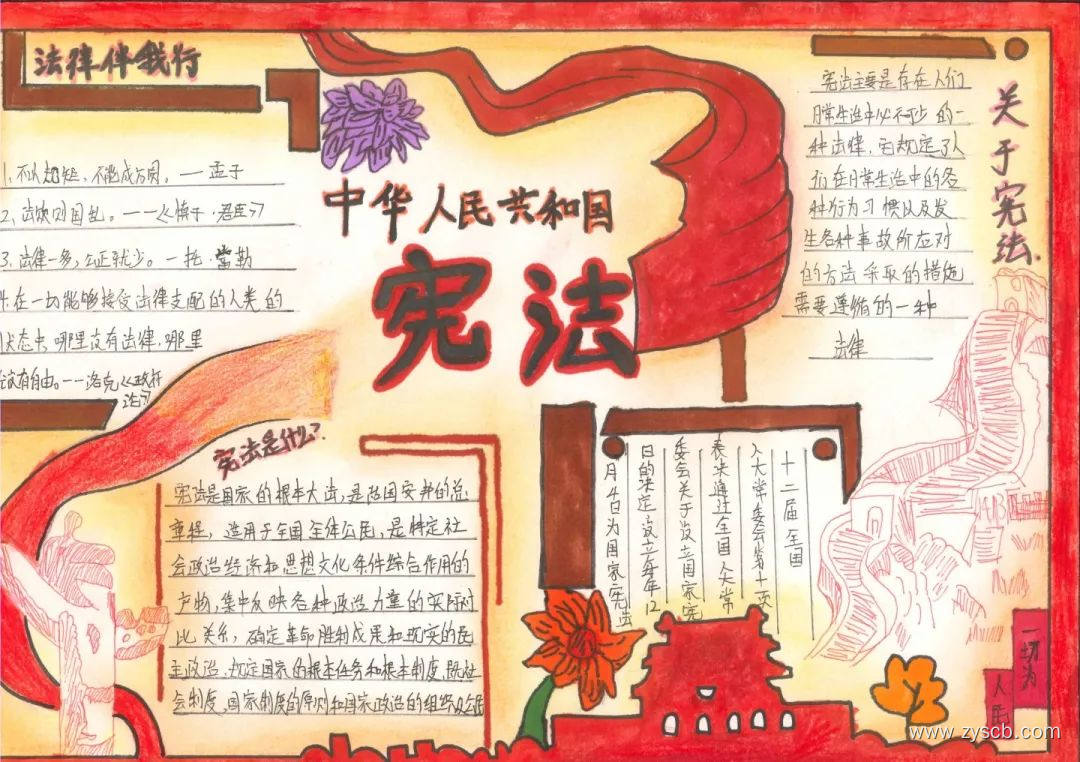 法律伴我行
1.不以规矩,不能成方圆。——孟子
2.法败则国乱。——《慎子·君臣》
3.法律一多,公正就少。—托·富勒
4.在一切能够接受法律支配的人类的
状态中,哪里没有法律,哪里
就没有自由。——洛克《政府
论》
中华人民共和国
宪法
关于宪法.
宪法主要是存在人们
日常生活中必不可少的一
种法律,它规定了人
们在日常生活中的各
种行为习惯以及发
生各种事故所应对
的方法采取的措施
需要遵循的一种
法律
宪法是什么?
宪法是国家的根本大法,是治国安邦的总
章程,适用于国全体公民,是特定社
会政治经济和思想文化条件综合作用的
产物,集中反映各种政治力量的实际对
比关系,确定革命胜利成果和现实的民
主政治,规定国家的根本任务和根本制度,既社
会制度,国家制度的原则和国家政治的组织及公民
十二届全国
人大常委会第十一次
表决通过全国人大常
委会关于设立国家宪
日的决定,设立每年12
月4日为国家宪法
一切为
人民
www.zyscb.com